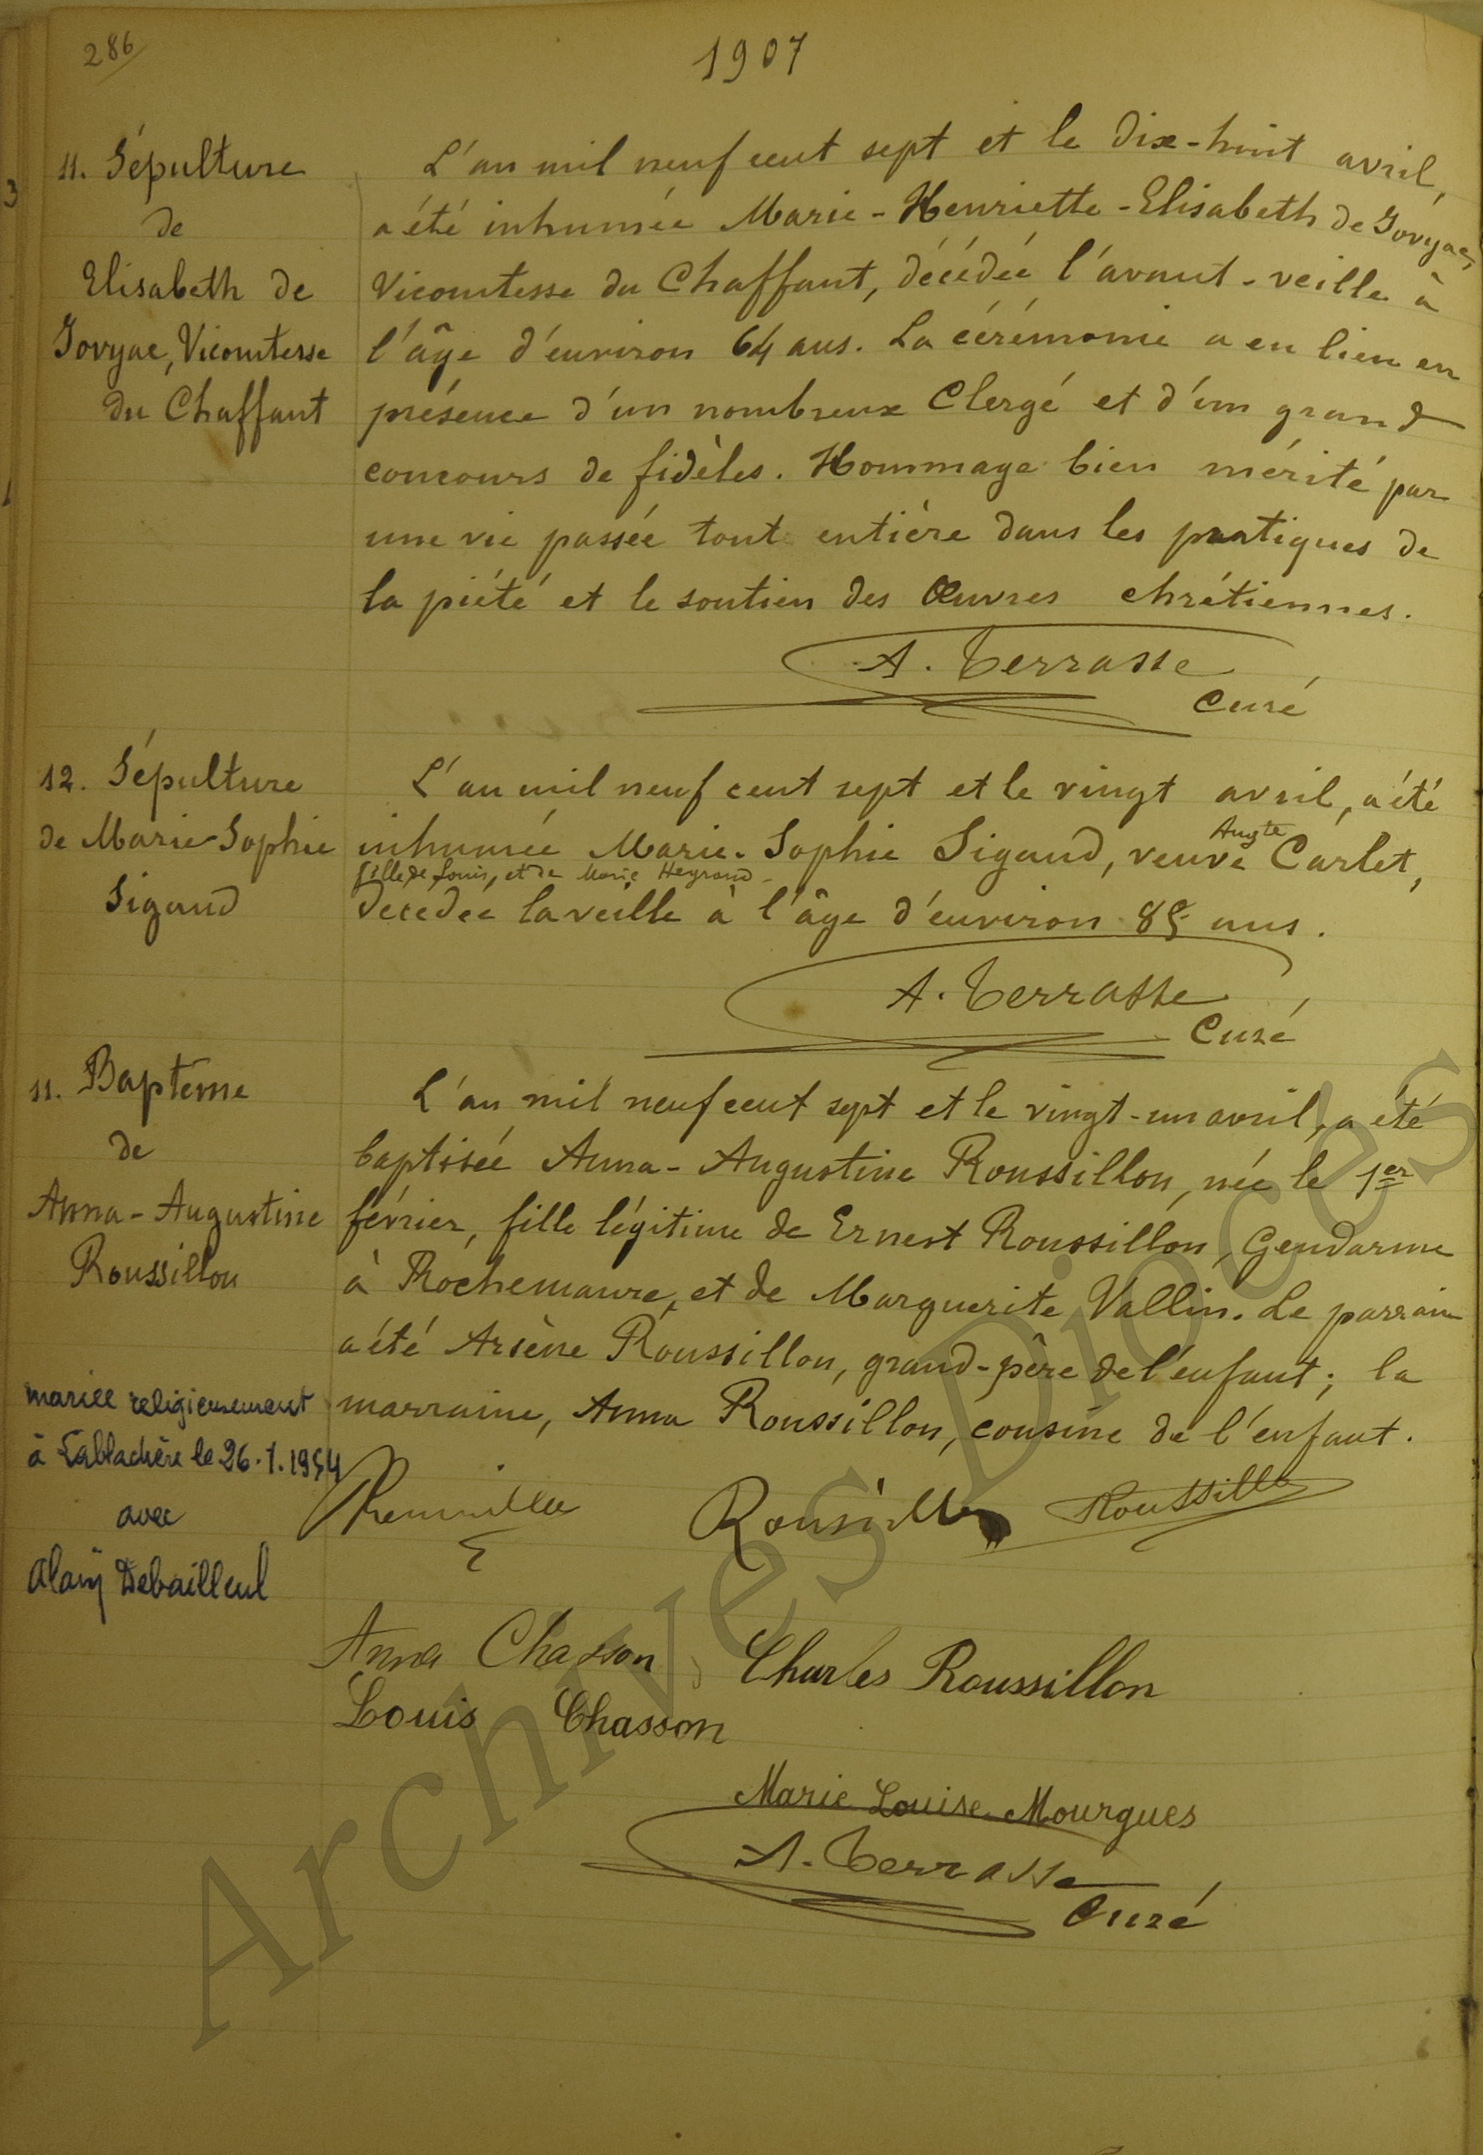 286
1907
11. Sépulture
de
Elisabeth de
Jovyac, Vicomtesse
du Chaffaut
L'an mil neuf cent sept et le dix-huit avril,
a été inhumée Marie-Henriette-Elisabeth de Jovyac,
Vicomtesse du Chaffaut, décédée l'avant-veille à
l'âge d'environ 64 ans. La cérémonie a eu lieu en
présence d'un nombreux Clergé et d'un grand
concours de fidèles. Hommage bien mérité par
une vie passée tout entière dans les pratiques de
la piété et le soutien des Œuvres chrétiennes.
A. Terrasse
Curé
12. Sépulture
de Marie-Sophie
Sigaud
L'an mil neuf cent sept et le vingt avril, a été
inhumée Marie-Sophie Sigaud, veuve Augte Carlet,
fille de Louis, et de Marie Heyraud
décédée la veille à l'âge d'environ 85 ans.
A. Terrasse
Curé
11. Baptême
de
Anna-Augustine
Roussillon
L'an mil neuf cent sept et le vingt-un avril, a été
baptisée Anna-Augustine Roussillon, née le 1er
février, fille légitime de Ernest Roussillon, Gendarme
à Rochemaure, et de Marguerite Vallin. Le parrain
a été Arsène Roussillon, grand-père de l'enfant; la
marraine, Anna Roussillon, cousine de l'enfant.
mariée religieusement
à Lablachère le 26.1.1954
avec
Alain Debailleul
Roussillon
Anna Chasson
Charles Roussillon
Louis Chasson
Marie Louise Mourgues
A. Terrasse
Curé
Archives Diocès